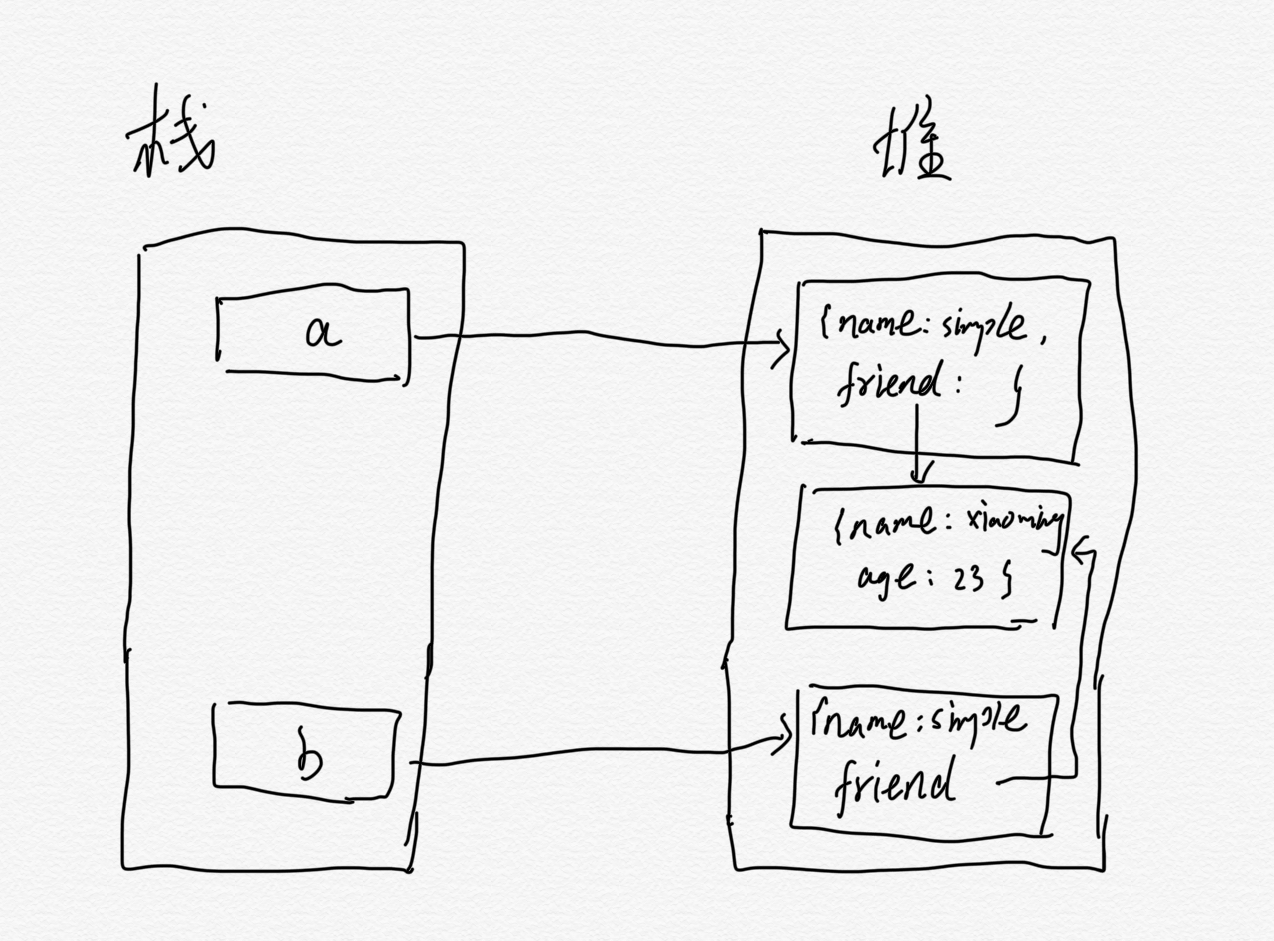 栈
堆
a
{name: simple,
friend: }
{name: xiaoming
age: 23 }
b
{name: simple
friend